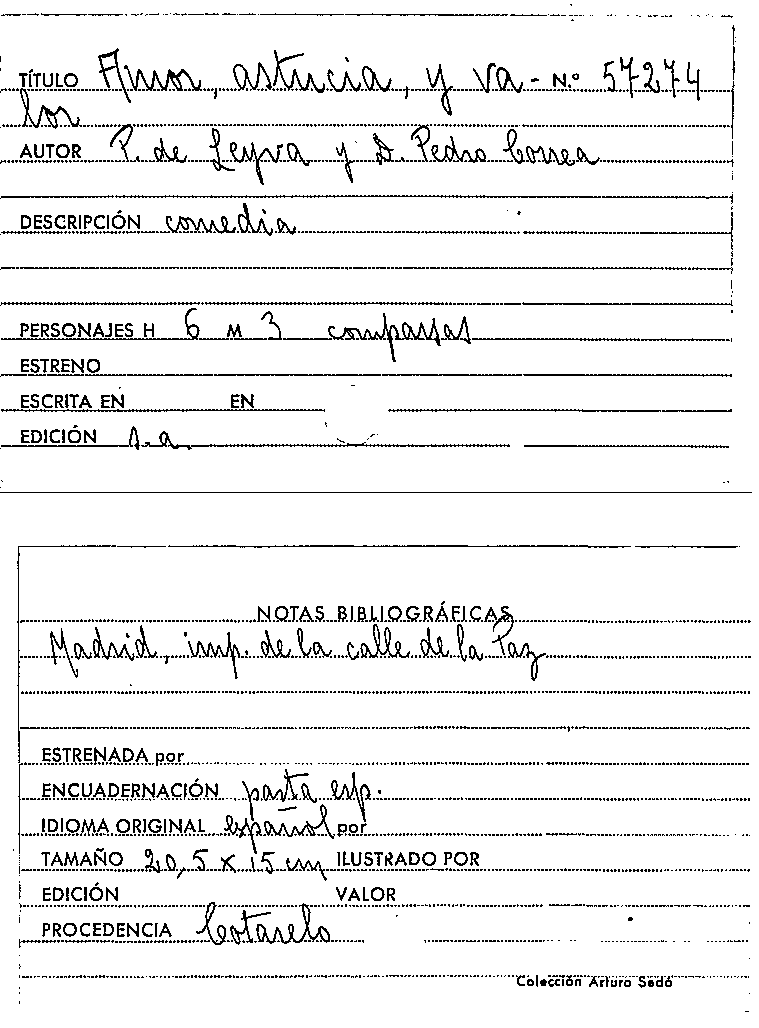 TÍTULO Amor, astucia, y va- N.º 57274
lor
AUTOR P. de Leyva y D. Pedro Correa
DESCRIPCIÓN comedia
PERSONAJES H 6 M 3 comparsas
ESTRENO
ESCRITA EN EN
EDICIÓN s.a.
NOTAS BIBLIOGRÁFICAS
Madrid, imp. de la calle de la Paz
ESTRENADA por
ENCUADERNACIÓN pasta esp.
IDIOMA ORIGINAL español por
TAMAÑO 20,5 x 15 cm ILUSTRADO POR
EDICIÓN VALOR
PROCEDENCIA Cotarelo
Colección Arturo Sedó